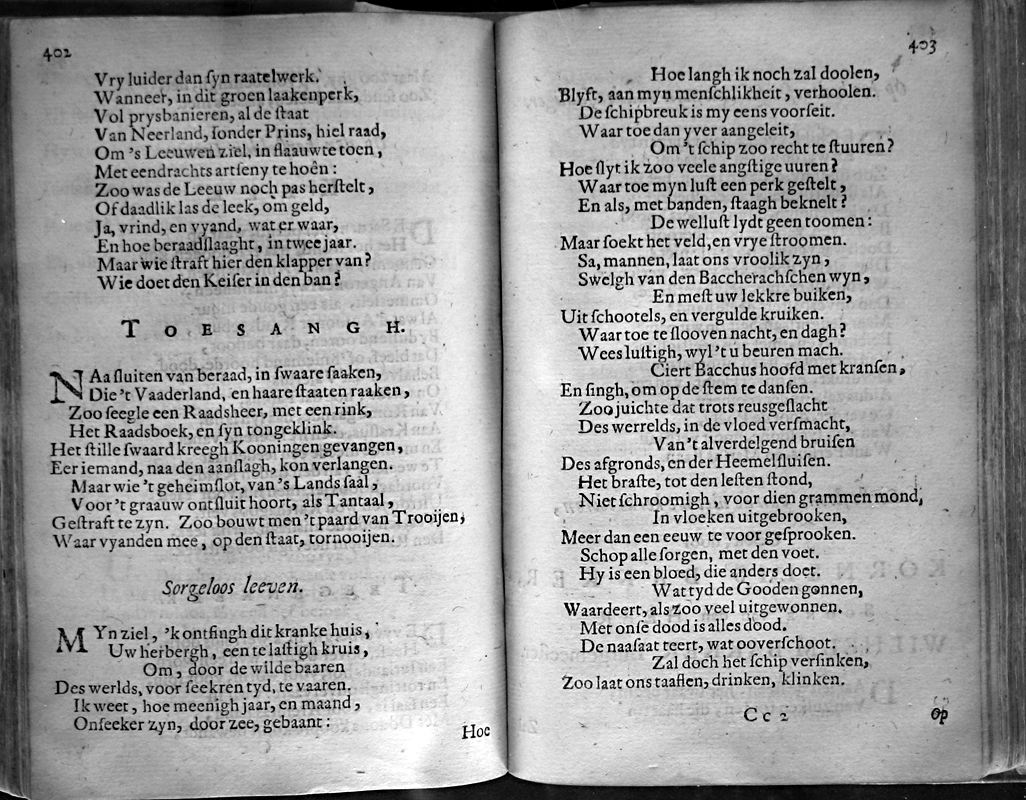 402
Vry luider dan ſyn raatelwerk.
Wanneer, in dit groen laakenperk,
Vol prysbanieren, al de ſtaat
Van Neerland, ſonder Prins, hiel raad,
Om 's Leeuwen ziel, in flaauwte toen,
Met eendrachts artſeny te hoên:
Zoo was de Leeuw noch pas herſtelt,
Of daadlik las de leek, om geld,
Ja, vrind, en vyand, wat er waar,
En hoe beraadſlaaght, in twee jaar.
Maar wie ſtraft hier den klapper van?
Wie doet den Keiſer in den ban?
TOESANGH.
NAa ſluiten van beraad, in ſwaare ſaaken,
Die 't Vaaderland, en haare ſtaaten raaken,
Zoo ſeegle een Raadsheer, met een rink,
Het Raadsboek, en ſyn tongeklink.
Het ſtille ſwaard kreegh Kooningen gevangen,
Eer iemand, naa den aanſlagh, kon verlangen.
Maar wie 't geheimſlot, van 's Lands ſaal,
Voor 't graauw ontſluit hoort, als Tantaal,
Geſtraft te zyn. Zoo bouwt men 't paard van Trooijen,
Waar vyanden mee, op den ſtaat, tornooijen.
Sorgeloos leeven.
MYn ziel, 'k ontfingh dit kranke huis,
Uw herbergh, een te laſtigh kruis,
Om, door de wilde baaren
Des werlds, voor ſeekren tyd, te vaaren.
Ik weet, hoe meenigh jaar, en maand,
Onſeeker zyn, door zee, gebaant:
Hoe
403
Hoe langh ik noch zal doolen,
Blyft, aan myn menſchlikheit, verhoolen.
De ſchipbreuk is my eens voorſeit.
Waar toe dan yver aangeleit,
Om 't ſchip zoo recht te ſtuuren?
Hoe ſlyt ik zoo veele angſtige uuren?
Waar toe myn luſt een perk geſtelt,
En als, met banden, ſtaagh beknelt?
De welluſt lydt geen toomen:
Maar ſoekt het veld, en vrye ſtroomen.
Sa, mannen, laat ons vroolik zyn,
Swelgh van den Baccherachſchen wyn,
En meſt uw lekkre buiken,
Uit ſchootels, en vergulde kruiken.
Waar toe te ſlooven nacht, en dagh?
Wees luſtigh, wyl 't u beuren mach.
Ciert Bacchus hoofd met kranſen,
En ſingh, om op de ſtem te danſen.
Zoo juichte dat trots reusgeſlacht
Des werrelds, in de vloed verſmacht,
Van 't alverdelgend bruiſen
Des afgronds, en der Heemelſluiſen.
Het braſte, tot den leſten ſtond,
Niet ſchroomigh, voor dien grammen mond,
In vloeken uitgebrooken,
Meer dan een eeuw te voor geſprooken.
Schop alle ſorgen, met den voet.
Hy is een bloed, die anders doet.
Wat tyd de Gooden gonnen,
Waardeert, als zoo veel uitgewonnen.
Met onſe dood is alles dood.
De naſaat teert, wat ooverſchoot.
Zal doch het ſchip verſinken,
Zoo laat ons taaflen, drinken, klinken.
Cc 2
Op